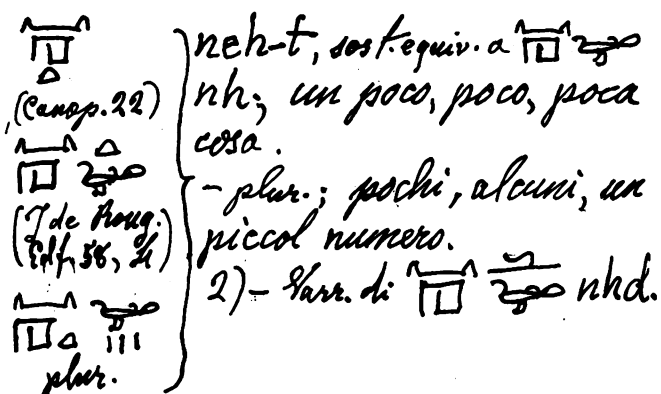 (Canop. 22)
(J de Roug.
Edf, 58,
plur.
neh-t, sost. equiv. a
nh; un poco, poco, poca
cosa.
- plur.; pochi, alcuni, un
piccol numero.
2) - Varr. di nhd.